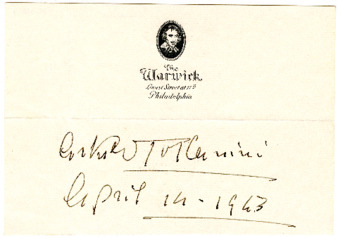 The
Warwick
Locust Street at 17th
Philadelphia
Arturo Toscanini
April 14 - 1943